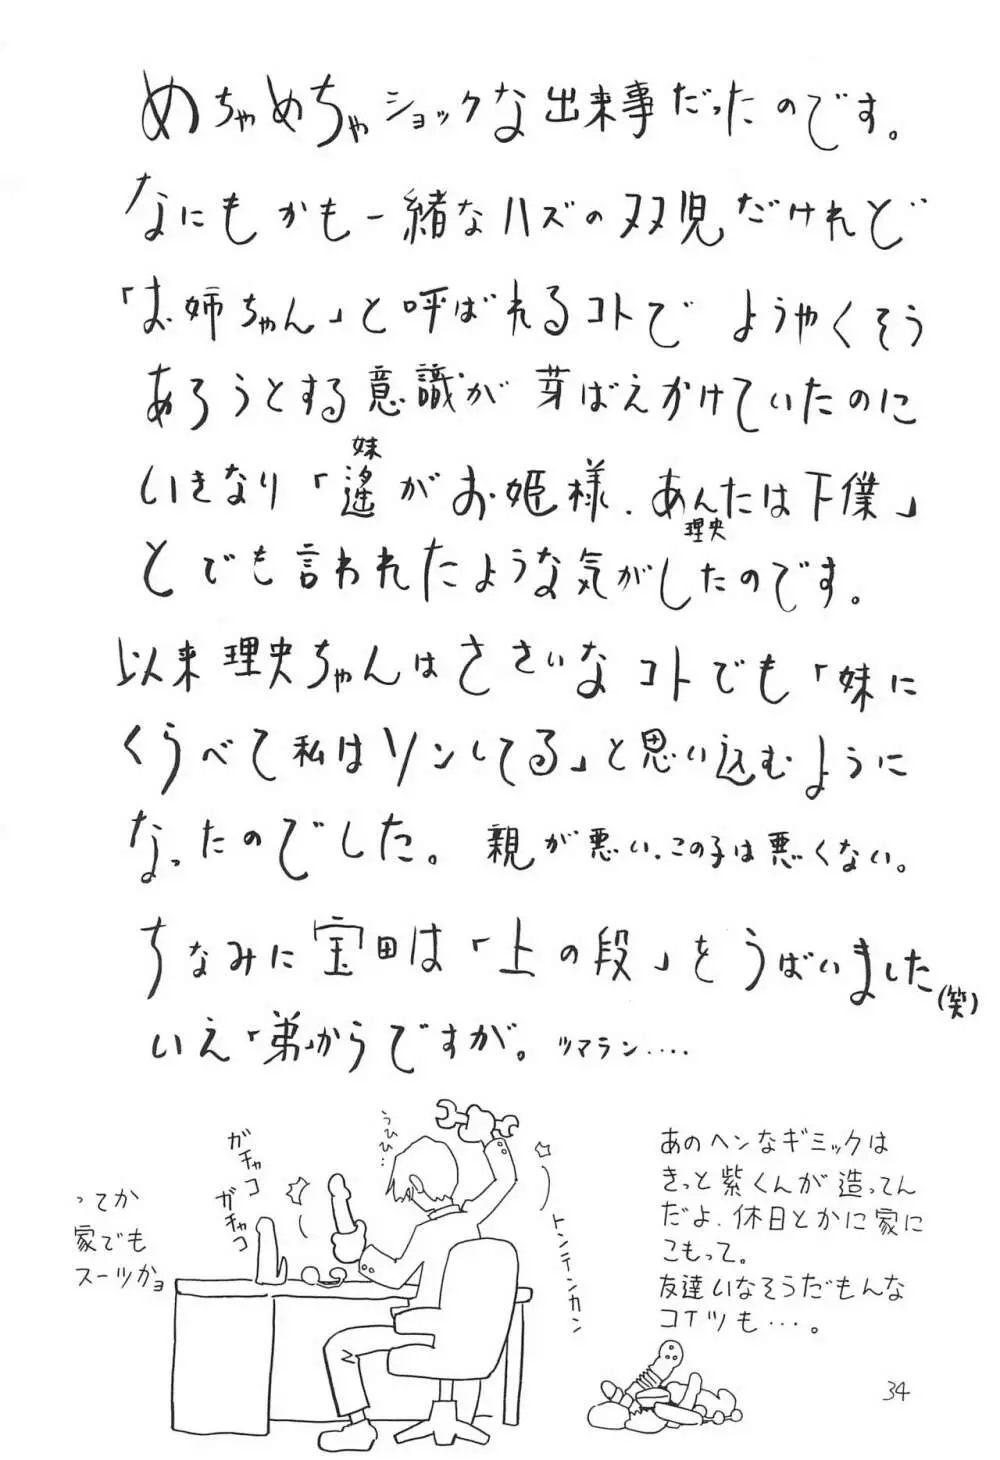 めちゃめちゃショックな出来事だったのです。
なにもかも一緒なハズの双児だけれど
「お姉ちゃん」と呼ばれるコトで ようやくそう
あろうとする意識が 芽ばえかけていたのに
妹
いきなり「遙がお姫様、あんたは下僕」
理央
とでも言われたような気がしたのです。
以来理央ちゃんはささいなコトでも「妹に
くらべて私はソンしてる」と思い込むように
なったのでした。親が悪い、この子は悪くない。
ちなみに宝田は「上の段」をうばいました(笑)
いえ「弟」からですが。ツマラン‥‥
うひひ…
ガチャコ
ガチャコ
トンテンカン
ってか
家でも
スーツかョ
あのヘンなギミックは
きっと紫くんが造ってん
だよ、休日とかに家に
こもって。
友達いなそうだもんな
コイツも…。
34